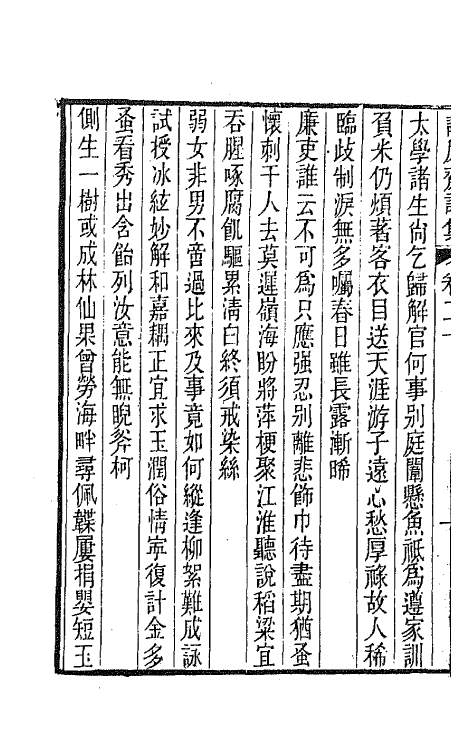 卷二十
太學諸生尙乞歸解官何事别庭闈懸魚祗為遵家訓
負米仍煩著客衣目送天涯游子遠心愁厚祿故人稀
臨歧制淚無多囑春日雖長露漸晞
廉吏誰云不可為只應强忍别離悲飾巾待盡期猶蚤
懷刺干人去莫遲嶺海盼將萍梗聚江淮聽說稻梁宜
吞腥啄腐飢驅累淸白終須戒染絲
弱女非男不啻過比來及事竟如何縱逢柳絮難成詠
試授冰絃妙解和嘉耦正宜求玉潤俗情寧復計金多
蚤看秀出含飴列汝意能無睨斧柯
側生一樹或成林仙果曾勞海畔尋佩韘屢捐嬰短玉